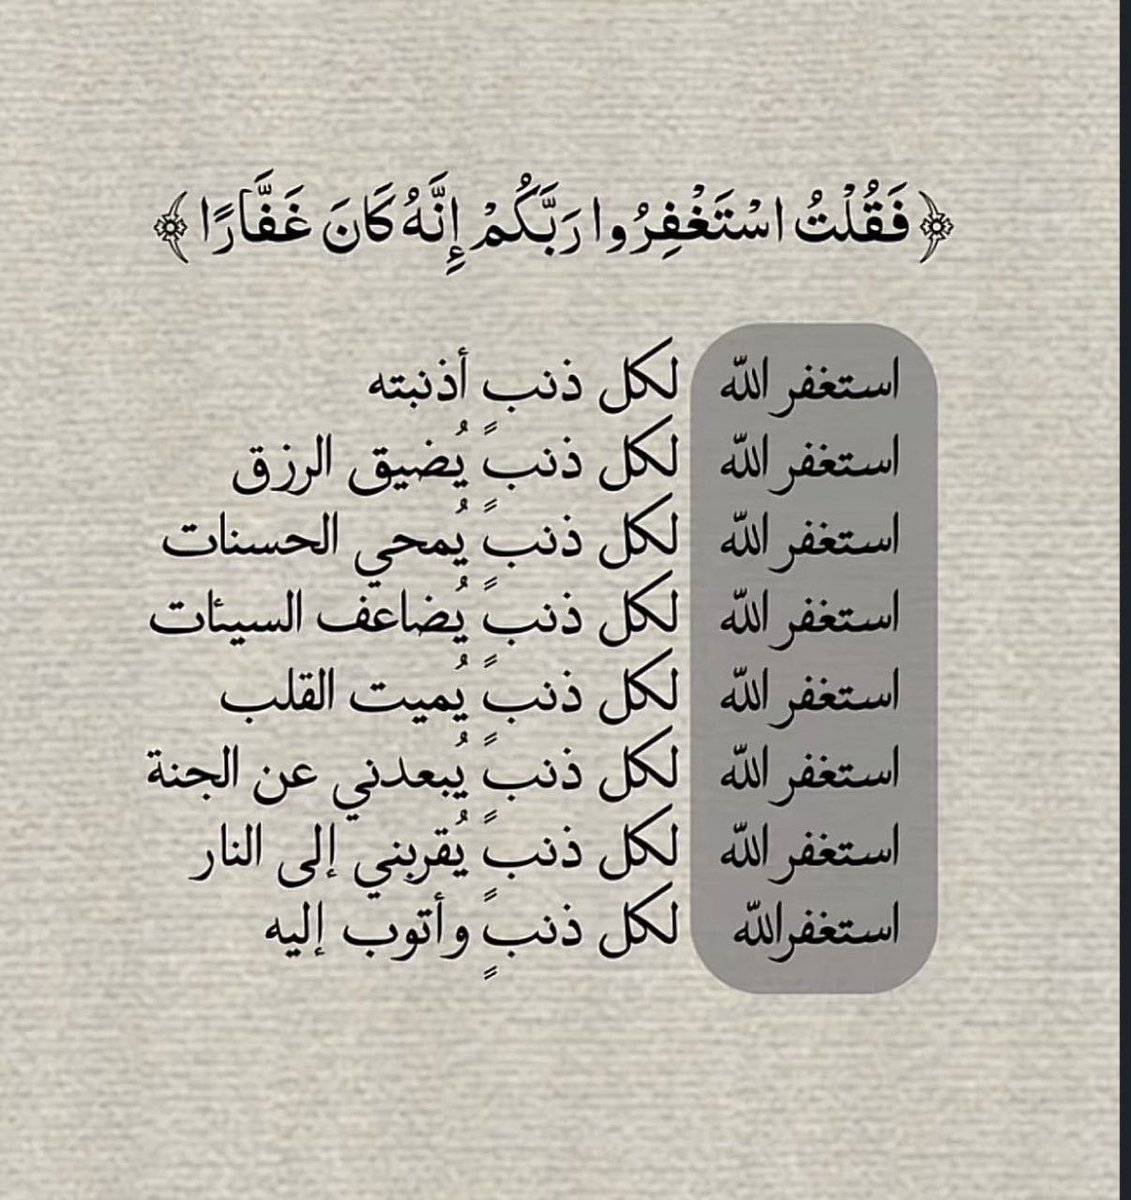 ﴿فَقُلْتُ اسْتَغْفِرُوا رَبَّكُمْ إِنَّهُ كَانَ غَفَّارًا﴾
استغفر الله لكل ذنبٍ أذنبته
استغفر الله لكل ذنبٍ يُضيق الرزق
استغفر الله لكل ذنبٍ يُمحي الحسنات
استغفر الله لكل ذنبٍ يُضاعف السيئات
استغفر الله لكل ذنبٍ يُميت القلب
استغفر الله لكل ذنبٍ يُبعدني عن الجنة
استغفر الله لكل ذنبٍ يُقربني إلى النار
استغفرالله لكل ذنبٍ وأتوب إليه